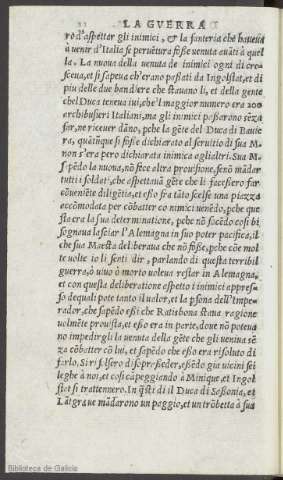 LA GVERRA
ro d'aspettar gli inimici, & la fanteria che haueua
à uenir d'Italia se peruētura fosse uenuta auāti à quel
la. La nuoua della uenuta de inimici ogni di cre=
sceua, et si sapeua ch'erano passati da Ingolstat, et di
piu delle due bandiere che stauano li, et della gente
chel Duca teneua iui, che'l maggior numero era 200
archibusieri Italiani, ma gli inimici passarono sēza
far, ne riceuer dāno, pche la gēte del Duca di Bauie
ra, quātūque si fosse dichiarato al seruitio di sua M.
non s'era pero dichiarata inimica agli altri. Sua M.
sapēdo la nuoua, nō fece altra prouisione, senō mādar
tutti i soldati, che aspettauā gēte che li facessero far
cōueniēte diligētia, et esso fra tāto scelse una piazza
accōmodata per cōbatter co nimici uenēdo, pche que
sta era la sua determinatione, pche nō facēdo cosi bi
sognaua lasciar l'Alemagna in suo poter pacifica, il
che sua Maestà deliberaua che nō fosse, pche cōe mol
te uolte io li senti dir, parlando di questa terribil
guerra, ò uiuo ò morto uoleua restar in Alemagna,
et con questa deliberatione aspetto i inimici appres=
so de quali pote tanto il ualor, et la psona dell'Impe=
rador, che sapēdo essi che Ratisbona staua ragione
uolmēte prouista, et esso era in parte, doue nō poteua
no impedirgli la uenuta della gēte che gli ueniua sē
za cōbatter cō lui, et sapēdo che esso era risoluto di
farlo, si risolsero di soprasseder, essēdo gia uicini sei
leghe à noi, et cosi cāpeggiando à Minique, et Ingol
stat si trattennero. In q̄sti di il Duca di Sassonia, et
Lātgraue mādarono un paggio, et un trōbetta à sua
Biblioteca de Galicia